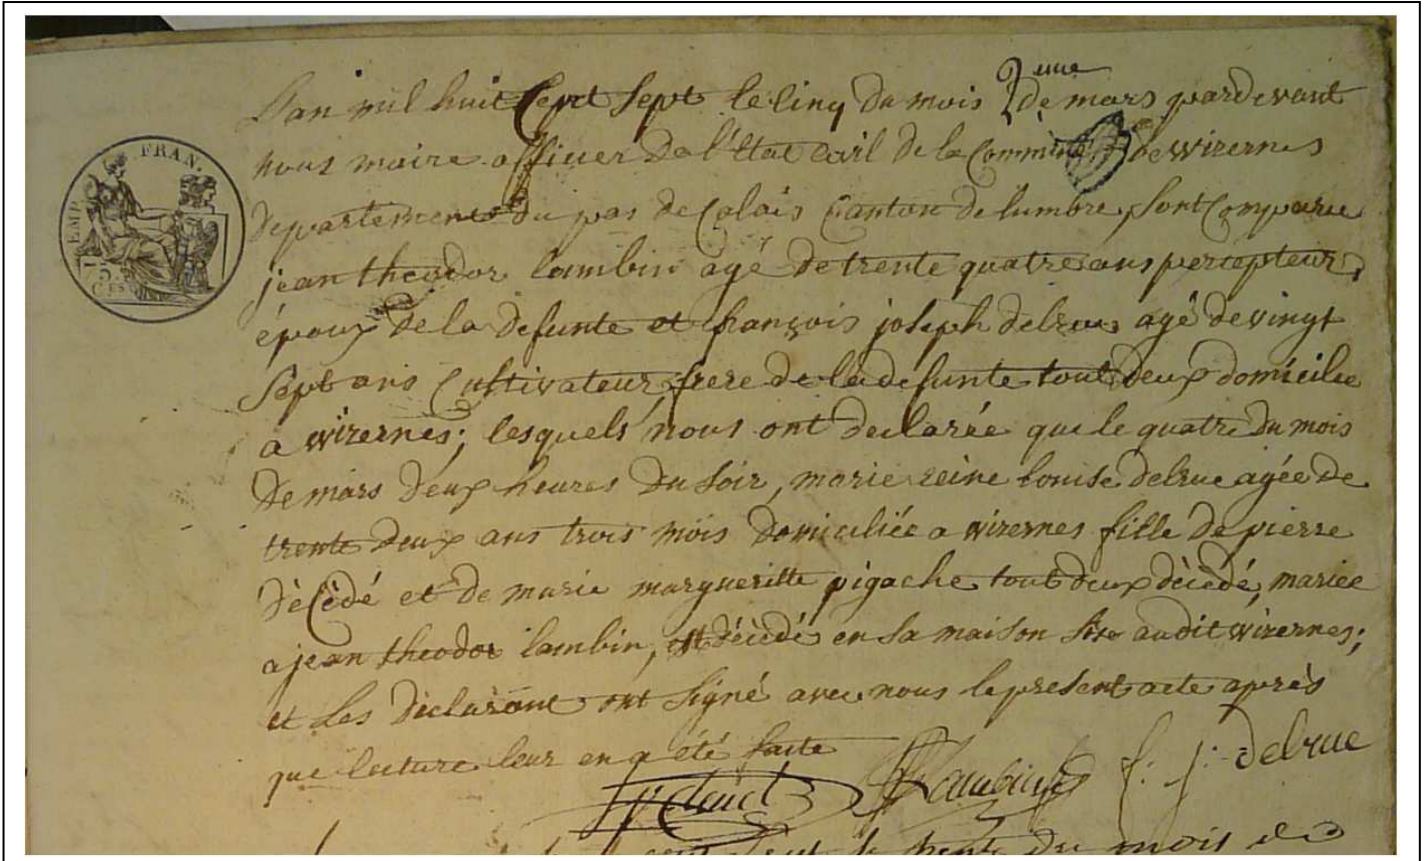 2eme
L'an mil huit Cept Sept le Cinq du mois de mars pardevant
nous maire officier de l'Etat Civil de la Commune de wizernes
departement du pas de Calais Canton de lumbre, Sont Comparu
jean theodor lambin agé de trente quatre ans percepteur,
époux de la defunte et françois joseph delrue agé de vingt
Sept ans Cultivateur, frere de la defunte tout deux domicilie
a wizernes; lesquels nous ont declarée que le quatre du mois
de mars deux heures du Soir, marie reine louise delrue agée de
trente deux ans trois mois domiciliée a wizernes fille de pierre
décédé et de marie margueritte pigache tout deux décédé, mariée
a jean theodor lambin, est décédé en Sa maison Sise audit wizernes;
et Les déclarant ont Signé avec nous le present acte après
que lecture leur en a été faite
Lambin f: j: delrue
EMP. FRAN.
du mois de